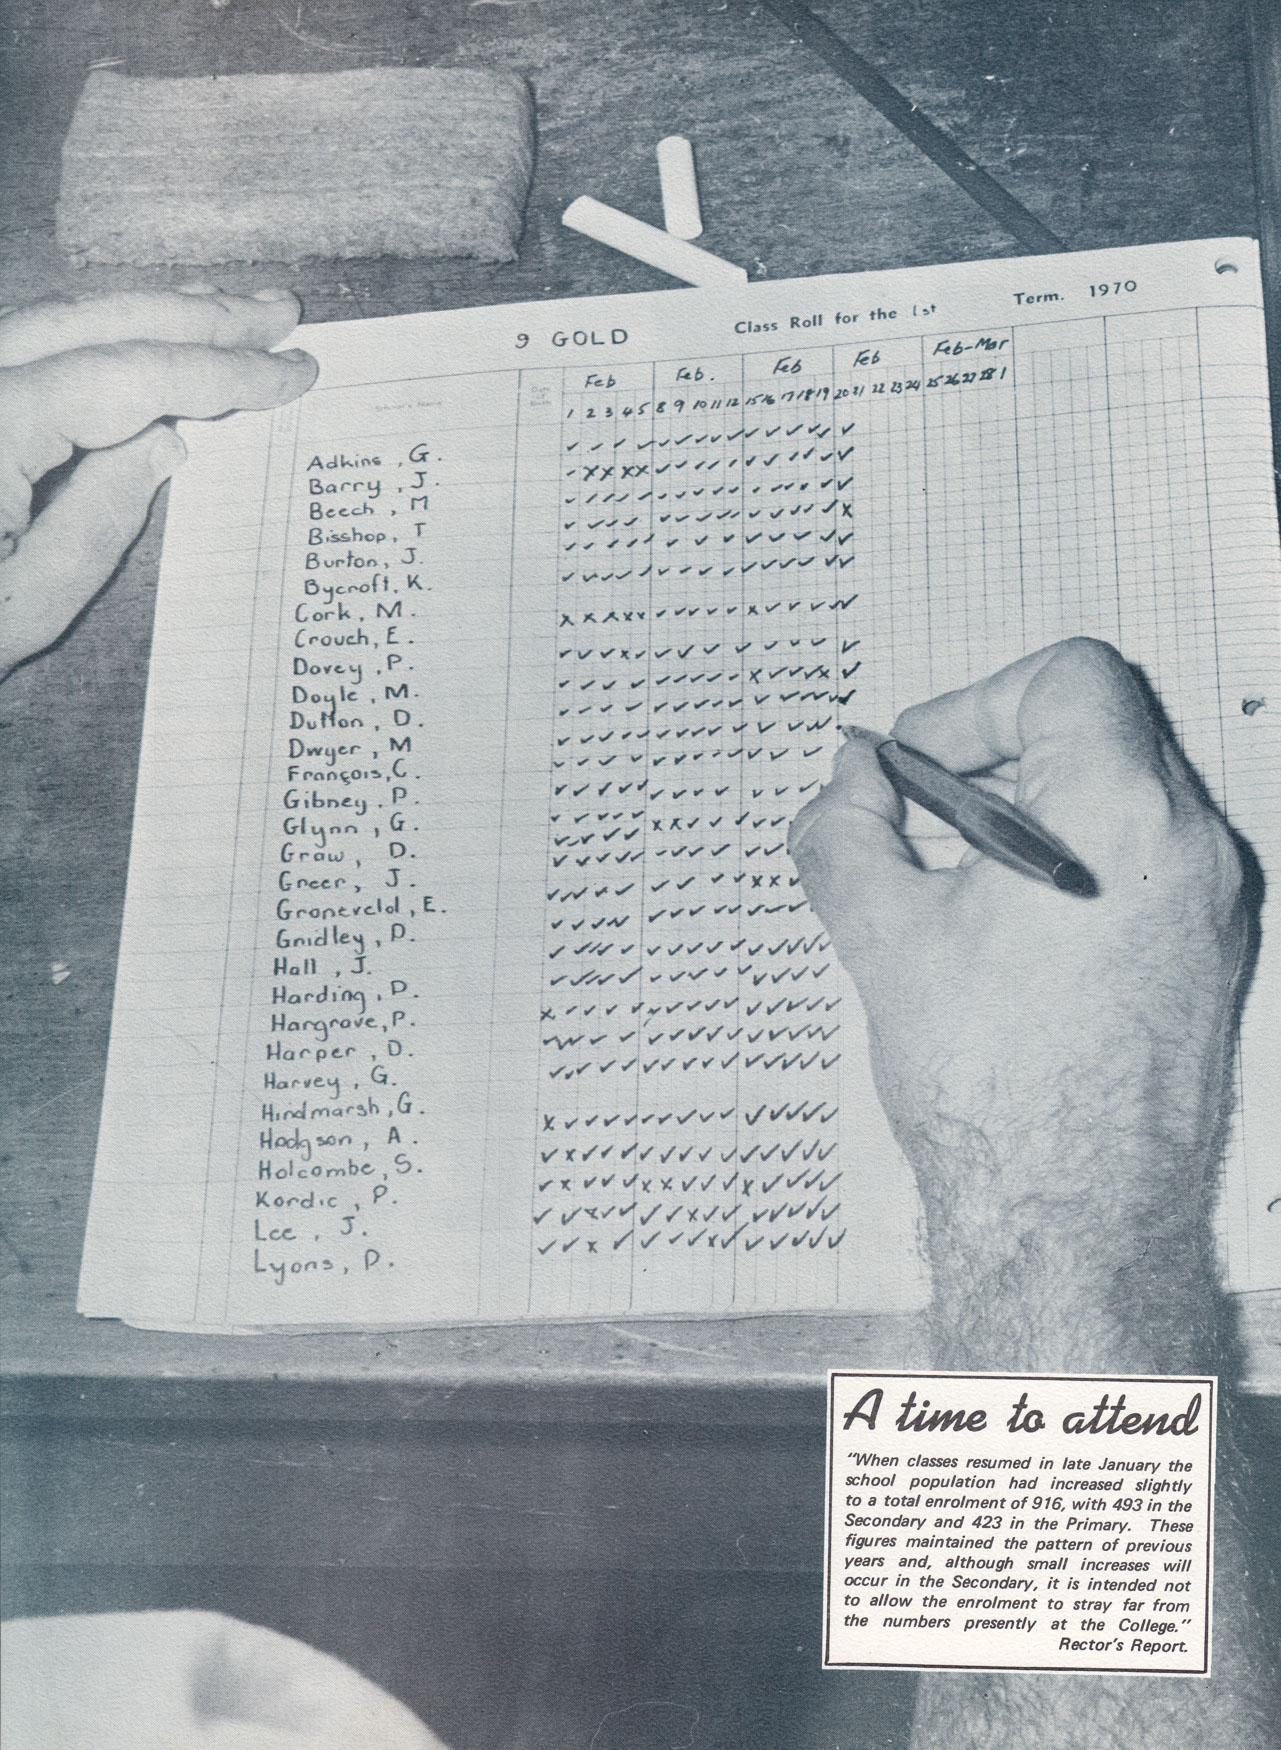 9 GOLD Class Roll for the 1st Term. 1970
Feb Feb. Feb Feb Feb-Mar
1 2 3 4 5 8 9 10 11 12 15 16 17 18 19 20 21 22 23 24 25 26 27 28 1
Adkins, G.
Barry, J.
Beech, M
Bisshop, T
Burton, J.
Bycroft, K.
Cork, M.
Crouch, E.
Dovey, P.
Doyle, M.
Dutton, D.
Dwyer, M
François, C.
Gibney, P.
Glynn, G.
Graw, D.
Greer, J.
Groneveld, E.
Gridley, D.
Hall, J.
Harding, D.
Hargrave, P.
Harper, D.
Harvey, G.
Hindmarsh, G.
Hodgson, A.
Holcombe, S.
Kordic, P.
Lee, J.
Lyons, D.
A time to attend
"When classes resumed in late January the
school population had increased slightly
to a total enrolment of 916, with 493 in the
Secondary and 423 in the Primary. These
figures maintained the pattern of previous
years and, although small increases will
occur in the Secondary, it is intended not
to allow the enrolment to stray far from
the numbers presently at the College."
Rector's Report.